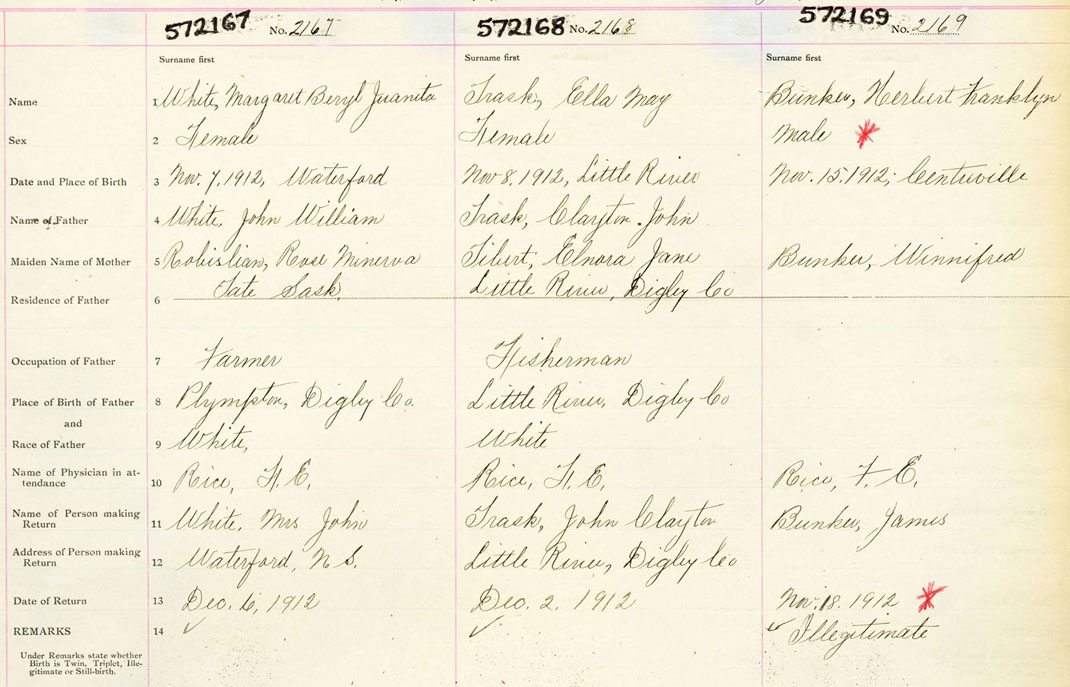 572167 No. 2167 572168 No. 2168 572169 No. 2169
Surname first Surname first Surname first
Name 1 White, Margaret Beryl Juanita Trask, Ella May Bunker, Herbert Franklyn
Sex 2 Female Female Male
Date and Place of Birth 3 Nov. 7, 1912, Waterford Nov 8, 1912, Little River Nov. 15. 1912, Centuville
Name of Father 4 White, John William Trask, Clayton John
Maiden Name of Mother 5 Robislian, Rose Minerva Tibert, Elnora Jane Bunker, Winnifred
Residence of Father 6 Tate Sask. Little River, Digby Co
Occupation of Father 7 Farmer Fisherman
Place of Birth of Father 8 Plympton, Digby Co. Little River, Digby Co
and
Race of Father 9 White, White
Name of Physician in at-
tendance 10 Rice, F. E. Rice, F. E. Rice, F. E.
Name of Person making
Return 11 White, Mrs John Trask, John Clayton Bunker, James
Address of Person making
Return 12 Waterford, N S. Little River, Digby Co
Date of Return 13 Dec. 6, 1912 Dec. 2, 1912 Nov. 18. 1912
REMARKS 14 Illegitimate
Under Remarks state whether
Birth is Twin, Triplet, Ille-
gitimate or Still-birth.